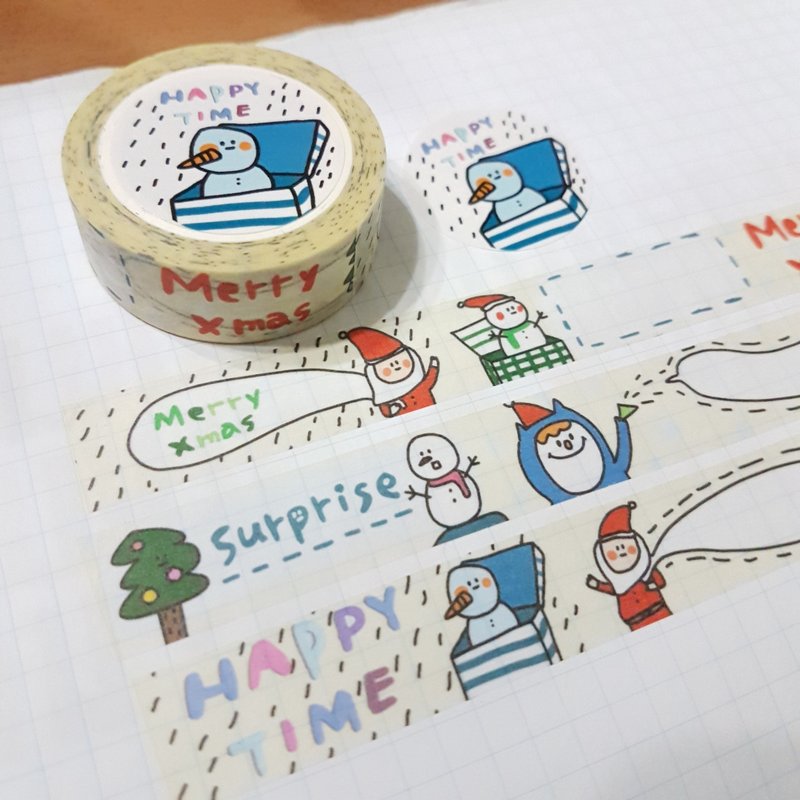 HAPPY
TIME
Merry
xmas
HAPPY
TIME
Me
Merry
xmas
surprise
HAPPY
TIME